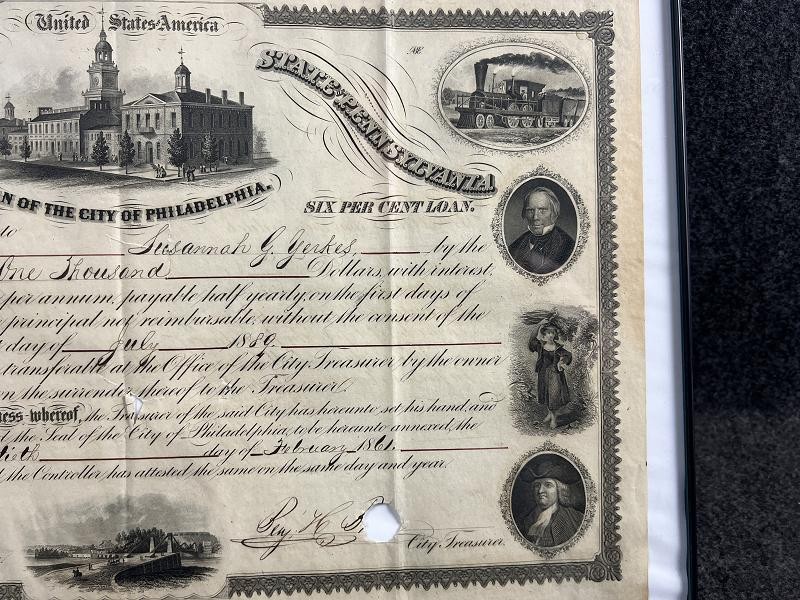 United States America
No.
STATE OF PENNSYLVANIA
N OF THE CITY OF PHILADELPHIA.
SIX PER CENT LOAN.
to
Susannah G. Yerkes, by the
One Thousand Dollars, with interest,
per annum, payable half yearly, on the first days of
principal not reimbursable, without the consent of the
day of July 1889.
transferable at the Office of the City Treasurer by the owner
on the surrender thereof to the Treasurer.
ness whereof, the Treasurer of the said City has hereunto set his hand, and
the Seal of the City of Philadelphia, to be hereunto annexed, the
tieth day of February 1861.
the Controller has attested the same on the same day and year.
Benj. H.
City Treasurer